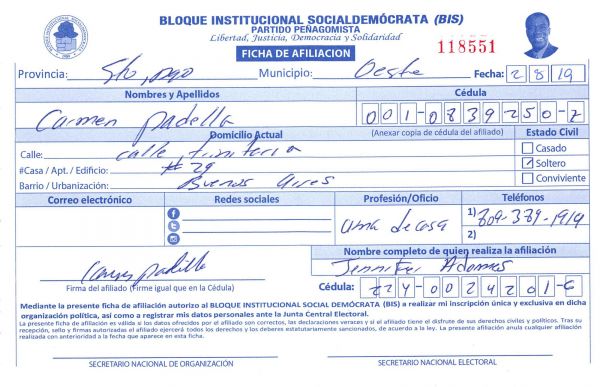 BLOQUE INSTITUCIONAL SOCIALDEMÓCRATA (BIS)
PARTIDO PEÑAGOMISTA
Libertad, Justicia, Democracia y Solidaridad
FICHA DE AFILIACION
118551
Provincia: Sto, Dgo Municipio: Oeste Fecha: 2 8 19
Nombres y Apellidos Cédula
Carmen Padilla 001-0839250-2
Domicilio Actual (Anexar copia de cédula del afiliado) Estado Civil
Calle: calle trinitaria Casado
#Casa / Apt. / Edificio: # 29 Soltero
Barrio / Urbanización: Buenos Aires Conviviente
Correo electrónico Redes sociales Profesión/Oficio Teléfonos
ama de casa 1) 809-389-1919
2)
Nombre completo de quien realiza la afiliación
Carmen Padilla Jennifer Adames
Firma del afiliado (Firme igual que en la Cédula) Cédula: 224-0024201-6
Mediante la presente ficha de afiliación autorizo al BLOQUE INSTITUCIONAL SOCIAL DEMÓCRATA (BIS) a realizar mi inscripción única y exclusiva en dicha
organización política, así como a registrar mis datos personales ante la Junta Central Electoral.
La presente ficha de afiliación es válida si los datos ofrecidos por el afiliado son correctos, las declaraciones veraces y si el afiliado tiene el disfrute de sus derechos civiles y políticos. Tras su
recepción, sello y firmas autorizadas el afiliado ejercerá todos los derechos y los deberes estatutariamente sancionados, de acuerdo a la ley. La presente afiliación anula cualquier afiliación
realizada con anterioridad a la fecha que aparece en esta ficha.
SECRETARIO NACIONAL DE ORGANIZACIÓN SECRETARIO NACIONAL ELECTORAL